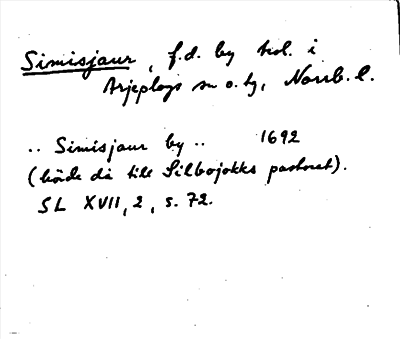 Simisjaur, f.d. by bel. i
Arjeplogs sn o. tg, Norrb. l.
.. Simisjaur by .. 1692
(hörde då till Silbojokks pastorat).
SL XVII, 2, s. 72.